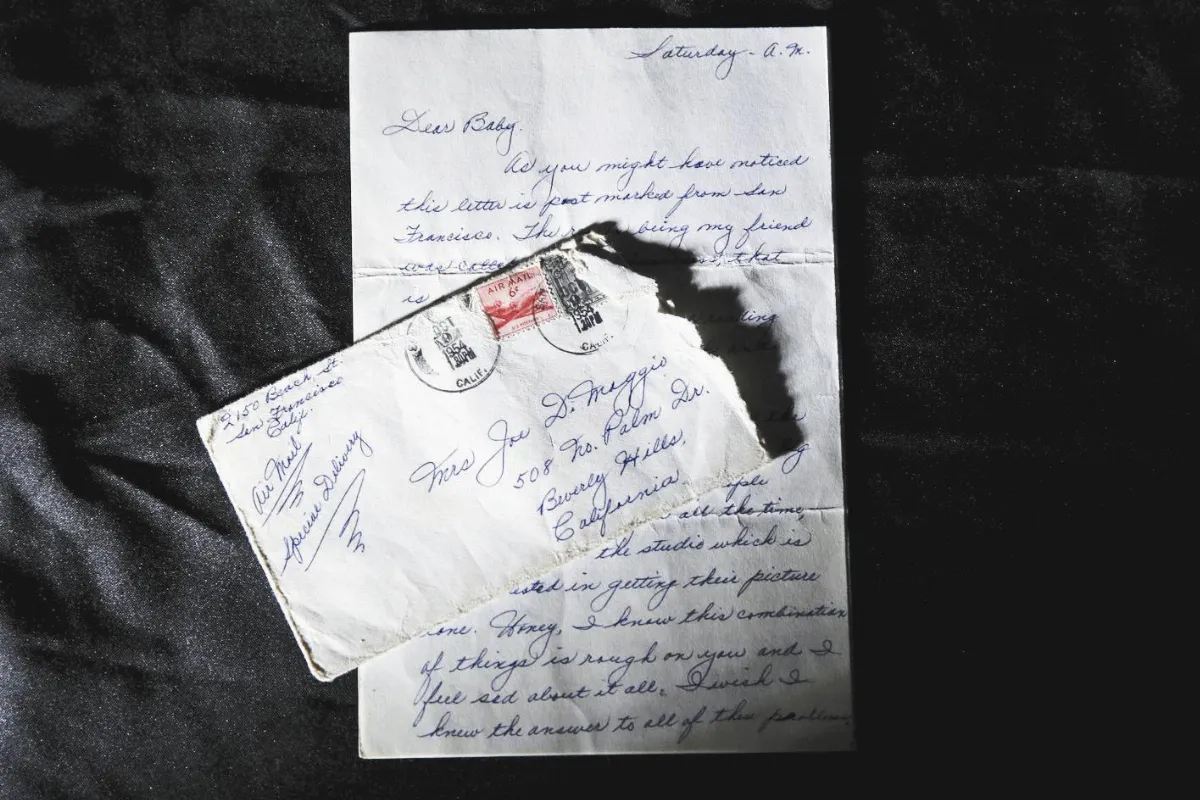 Saturday - A.M.
Dear Baby,
As you might have noticed
this letter is post marked from San
Francisco. The being my friend
was that
is
the
all the time,
the studio which is
in getting their picture
Honey, I know this combination
of things is rough on you and I
feel sad about it all. I wish I
knew the answer to all of these problems
2150 Beach St
San Francisco
Calif.
Air Mail
Special Delivery
OCT
1954
CALIF.
AIR MAIL
6¢
1954
CALIF.
Mrs Joe D. Maggio
508 No. Palm Dr.
Beverly Hills,
California